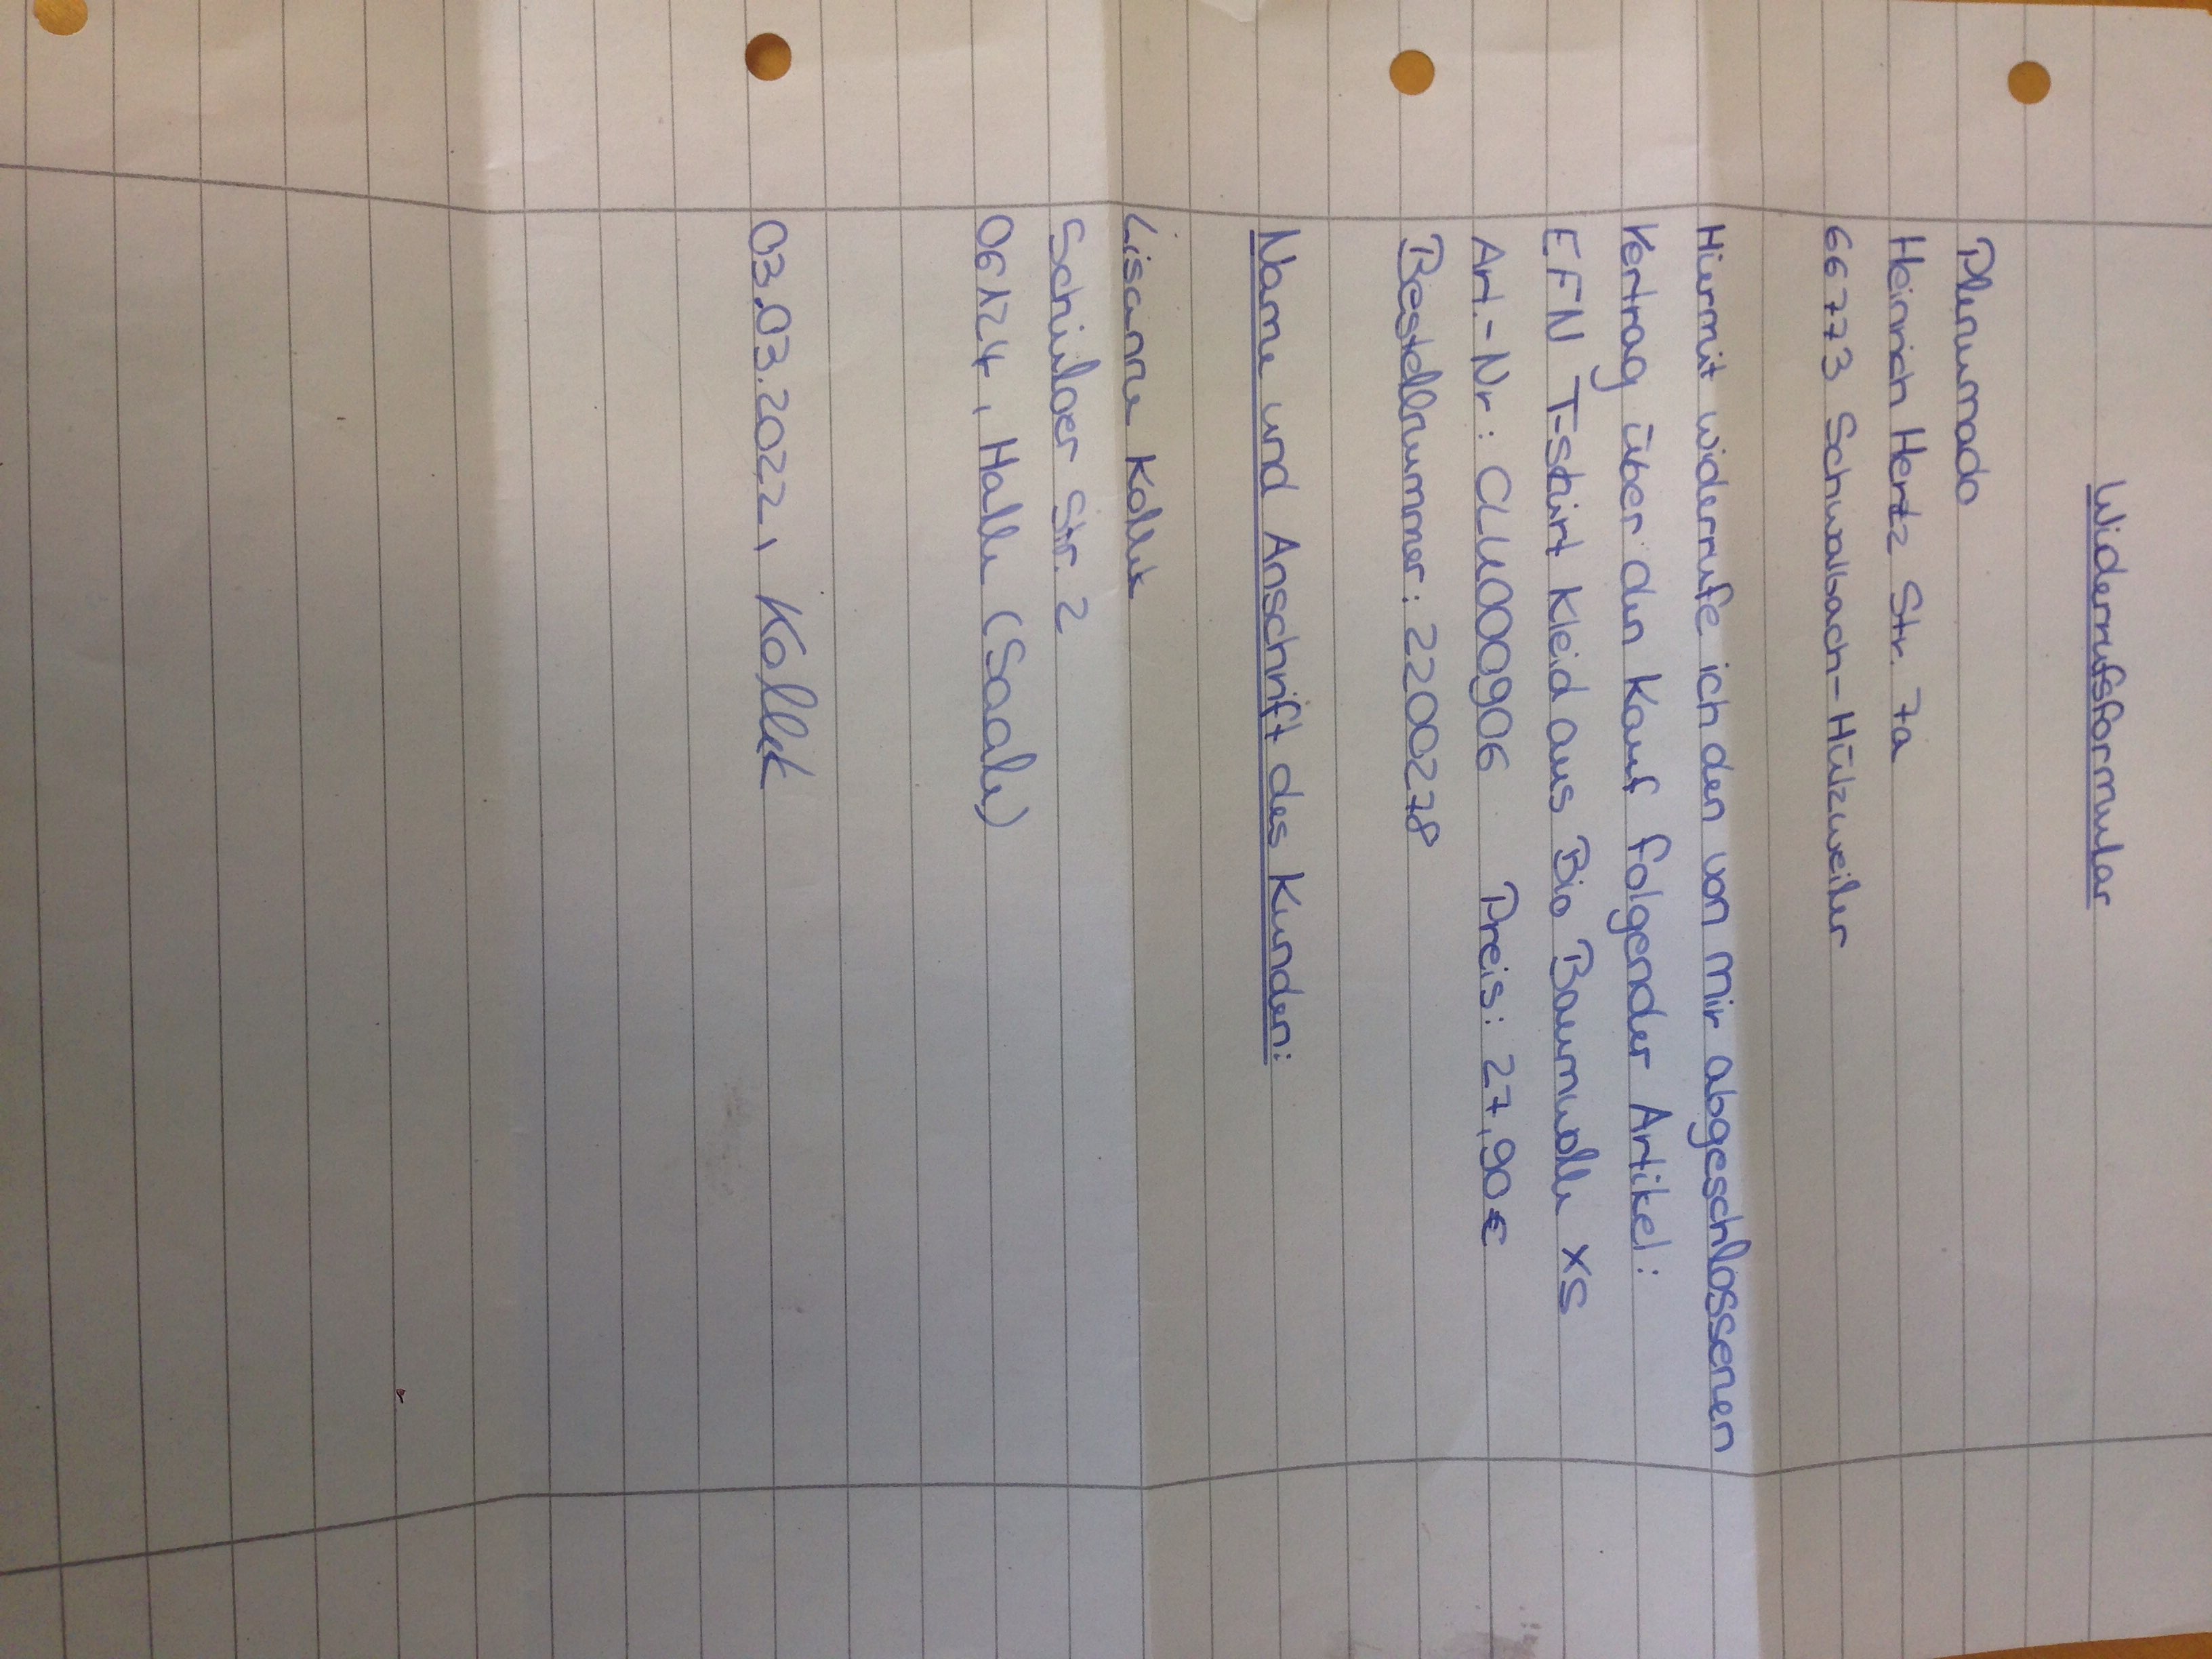 Widerrufsformular
Plenumado
Heinrich Hertz Str. 7a
66773 Schwalbach-Hülzweiler
Hiermit widerrufe ich den von mir abgeschlossenen
Vertrag über den Kauf folgender Artikel:
EFN T-Shirt Kleid aus Bio Baumwolle XS
Art.-Nr: CLU000906 Preis: 27,90€
Bestellnummer: 2200278
Name und Anschrift des Kunden:
Lisanne Kollek
Str. 2
06124, Halle (Saale)
03.03.2022, Kollek